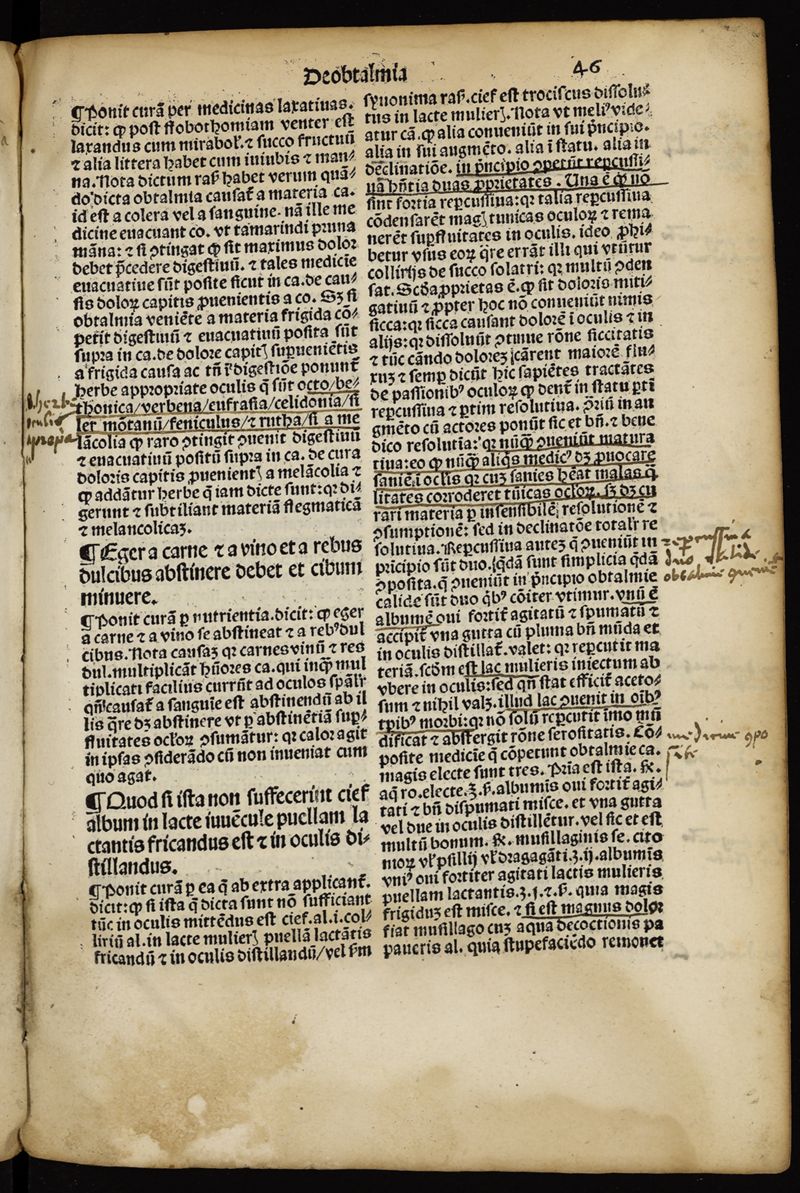 De obtalmia
46
¶Ponit curã per medicinas laxatiuas.
dicit: ꝙ post flobothomiam venter est
laxandus cum mirabol'. ⁊ succo fructuũ
⁊ alia littera habet cum iuiubis ⁊ man⸗
na. Nota dictum ras. habet verum quã⸗
do dicta obtalmia causat̃ a materia ca.
id est a colera vel a sanguine. nã ille me
dicine euacuant co. vt tamarindi pruna
mãna: ⁊ si ꝯtingat ꝙ sit maximus dolor
debet p̃cedere digestiuũ. ⁊ tales medicie
euacuatiue sũt posite sicut in ca. de cau⸗
sis doloꝝ capitis ꝓuenientis a co. Sꝫ si
obtalmia veniẽte a materia frigida cõ⸗
petit digestiuũ ⁊ euacuatiuũ posita sũt
supra in ca. de dolore capit̃ suꝑuenietis
a frigida causa ac tñ ĩ digestiõe ponunt̃
herbe appropriate oculis q̃ sũt octo/be⸗
thonica/verbena/eufrasia/celidonia/si
ler mõtanũ/feniculus/⁊ rutha/si a me
lãcolia ꝙ raro ꝯtingit ꝓuenit digestiuũ
⁊ euacuatiuũ positũ supra in ca. de cura
doloris capitis ꝓuenient̃ a melãcolia ⁊
ꝙ addãtur herbe q̃ iam dicte sunt: qꝛ di⸗
gerunt ⁊ subtiliant materiã flegmaticã
⁊ melancolicaꝫ.
¶Eger a carne ⁊ a vino et a rebus
dulcibus abstinere debet et cibum
minuere.
¶Ponit curã ꝑ nutrientia. dicit: ꝙ eger
a carne ⁊ a vino se abstineat ⁊ a rebꝰ dul
cibus. Nota causaꝫ qꝛ carnes vinũ ⁊ res
dul. multiplicãt hũores ca. qui inqꝫ mul
tiplicati facilius currũt ad oculos sp̃alr̃
qñ causat̃ a sanguie est abstinendũ ab il
lis q̃re dꝫ abstinere vt ꝑ abstinẽtiã suꝑ⸗
fluitates ocl'oꝝ ꝯsumãtur: qꝛ calor agit
in ipsas ꝯsiderãdo cũ non inueniat cum
quo agat.
¶Quod si ista non suffecerint cief
album in lacte iuuẽcule puellam la
ctantis fricandus est ⁊ in oculis di⸗
stillandus.
¶Ponit curã ꝑ ea q̃ ab extra applicant̃.
dicit: ꝙ si ista q̃ dicta sunt nõ sufficiant
tũc in oculis mittẽdus est cief. al. i. col⸗
liriũ al. in lacte mulier̃ puellã lactãtis
fricandũ ⁊ in oculis distillandũ/vel s̃m
synonima ras. cief est trociscus dissolu⸗
tus in lacte mulier̃. Nota vt meliꝰ vide⸗
atur cã. ꝙ alia conueniũt in sui p̃ncipio.
alia in sui augmẽto. alia ĩ statu. alia in
declinatiõe. in p̃ncipio ꝯpetũt repcussi⸗
ua hñtia duas ꝓprietates. Una ẽ ꝙ nõ
sint fortia repcussiua: qꝛ talia repcussiua
cõdensarẽt mag̃ tunicas oculoꝝ ⁊ rema
nerẽt supfluitates in oculis. ideo ꝓhi⸗
betur vsus eoꝝ q̃re errãt illi qui vtũtur
collirijs de succo solatri: qꝛ multũ ꝯden
sat. Scđa ꝓprietas ẽ. ꝙ sit doloris miti⸗
gatiuũ ⁊ ꝓpter hoc nõ conueniũt nimis
sicca: qꝛ sicca causant dolorẽ ĩ oculis ⁊ in
alijs: qꝛ dissoluũt ꝯtinue rõne siccitatis
⁊ tũc cãndo doloreꝫ īcãrent maiorẽ flu⸗
xuꝫ ⁊ semꝑ dicũt hic sapiẽtes tractãtes
de passionibꝰ oculoꝝ ꝙ dent̃ in statu ꝑti
repcussiua ⁊ ꝑtim resolutiua. ꝓ̃iũ in au
gmẽto cũ actores ponũt sic et bñ. ⁊ bene
dico resolutia: qꝛ nũqꝫ ꝯueniũt matura
tiua: eo ꝙ nũqꝫ aliqs medicꝰ dꝫ ꝓuocare
saniẽ ĩ oclis qꝛ cuꝫ sanies heat malas q̃
litates corroderet tũicas ocl'oꝝ. sꝫ dꝫ cu
rari materia ꝑ insensibilẽ resolutionẽ ⁊
ꝯsumptionẽ: sed in declinatõe totalr̃ re
solutiua. Repcussiua auteꝫ q̃ ꝯueniũt in
p̃ncipio sũt duo. qdã sunt simplicia qdã
ꝯposita. q̃ ꝯueniũt in p̃ncipio obtalmie
calide sũt duo q̃bꝰ cõiter vtimur. vnũ ẽ
albumẽ oui fortit̃ agitatũ ⁊ spumatũ ⁊
accipit̃ vna gutta cũ pluma bñ mũda et
in oculis distillat̃. valet: qꝛ repcutit ma
teriã. scđm est lac mulieris iniectum ab
vbere in oculis: sed qñ stat efficit̃ aceto⸗
sum ⁊ nihil valꝫ. illud lac ꝯuenit in oĩbꝰ
tp̃ibꝰ morbi: qꝛ nõ solũ repcutit imo mũ
dificat ⁊ abstergit rõne serositatis. Cõ⸗
posite medicie q̃ cõpetunt obtalmie ca.
magis electe sunt tres. Pria est ista. ℞.
aq̃ ro. electe. ʒ. ß. albumis oui fortit̃ agi⸗
tati ⁊ bñ dispumati misce. et vna gutta
vel due in oculis distillẽtur. vel sic et est
multũ bonum. ℞. musillaginis se. cito
nioꝝ vl' psillij vl' dragagãti. ʒ. ij. albumis
vniꝰ oui fortiter agitati lactis mulieris
puellam lactantis. ʒ. j. ⁊. ß. quia magis
frigiduꝫ est misce. ⁊ si est magnus dolor
fiat musillago cuꝫ aqua decoctionis pa
paueris al. quia stupefaciẽdo remouet